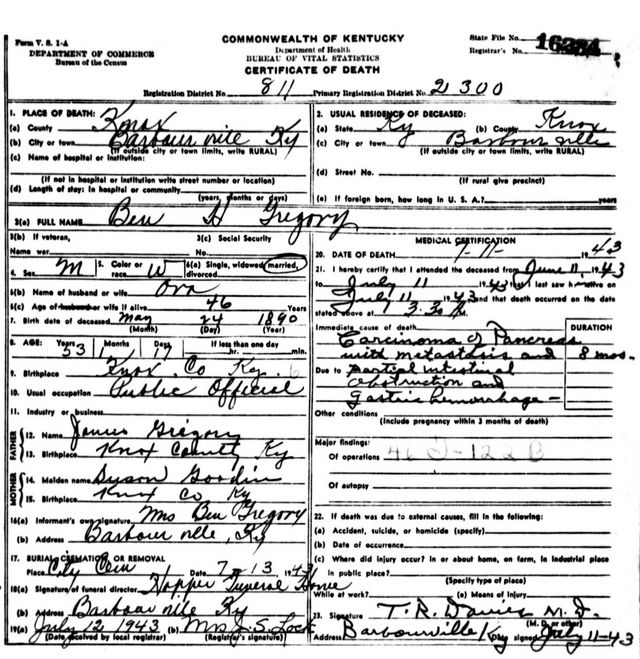 Form V. S. 1-A
DEPARTMENT OF COMMERCE
Bureau of the Census
COMMONWEALTH OF KENTUCKY
Department of Health
BUREAU OF VITAL STATISTICS
CERTIFICATE OF DEATH
State File No.
Registrar's No.
Registration District No. 811 Primary Registration District No. 2300
1. PLACE OF DEATH:
(a) County Knox
(b) City or town Barbourville Ky
(If outside city or town limits, write RURAL)
(c) Name of hospital or institution:
(If not in hospital or institution write street number or location)
(d) Length of stay: In hospital or community
(years, months or days)
2. USUAL RESIDENCE OF DECEASED:
(a) State Ky (b) County Knox
(c) City or town Barbourville
(If outside city or town limits, write RURAL)
(d) Street No.
(If rural give precinct)
(e) If foreign born, how long in U. S. A.? years
3(a) FULL NAME Ben H Gregory
3(b) If veteran,
Name war
3(c) Social Security
No.
4. Sex M 5. Color or race W 6(a) Single, widowed, married, divorced
6(b) Name of husband or wife Ora
6(c) Age of husband or wife if alive 46 Years
7. Birth date of deceased May 24 1890
(Month) (Day) (Year)
8. AGE: Years 53 Months 1 Days 17 If less than one day
hr. min.
9. Birthplace Knox Co Ky.
10. Usual occupation Public Official
11. Industry or business
FATHER
12. Name James Gregory
13. Birthplace Knox County Ky
MOTHER
14. Maiden name Susan Goodin
15. Birthplace Knox Co Ky
16(a) Informant's own signature Mrs Ben Gregory
(b) Address Barbourville, Ky
17. BURIAL, CREMATION, OR REMOVAL
Place City Cem Date 7-13 1943
18(a) Signature of funeral director Hopper Funeral Home
(b) Address Barbourville Ky
19(a) July 12 1943 (b) Mrs J. S. Lock
(Date received by local registrar) (Registrar's signature)
MEDICAL CERTIFICATION
20. DATE OF DEATH 1943
21. I hereby certify that I attended the deceased from June 11, 1943
to July 11 1943 that I last saw alive on
July 11 1943 and that death occurred on the date
stated above at 3:30
Immediate cause of death DURATION
Carcinoma of Pancreas
with metastasis and 8 mos.
Due to partial intestinal
obstruction and
Gastric hemorrhage -
Other conditions
(Include pregnancy within 3 months of death)
Major findings:
Of operations
Of autopsy
22. If death was due to external causes, fill in the following:
(a) Accident, suicide, or homicide (specify)
(b) Date of occurrence
(c) Where did injury occur? in or about home, on farm, in industrial place
in public place?
(Specify type of place)
While at work? (e) Means of injury
23. Signature T. R. Davies M. D.
(M. D. or other)
Address Barbourville Ky Date signed July 11-43